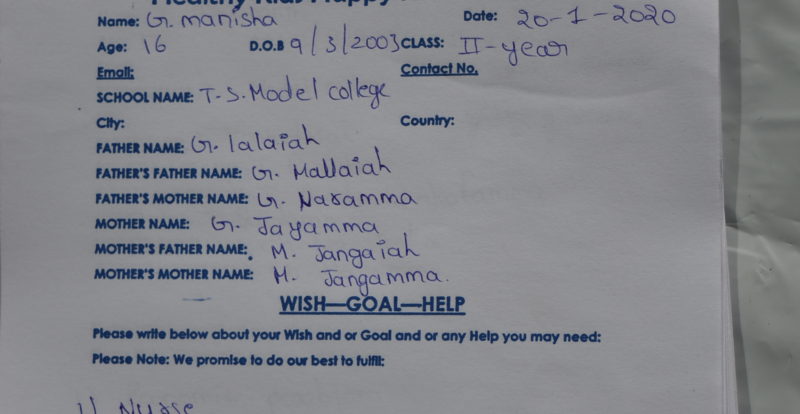 Healthy Kids Happy
Name: G. manisha Date: 20-1-2020
Age: 16 D.O.B 9/3/2003 CLASS: II-year
Email: Contact No.
SCHOOL NAME: T.S. Model college
City: Country:
FATHER NAME: G. lalaiah
FATHER'S FATHER NAME: G. Mallaiah
FATHER'S MOTHER NAME: G. Naramma
MOTHER NAME: G. Jayamma
MOTHER'S FATHER NAME: M. Jangaiah
MOTHER'S MOTHER NAME: M. Jangamma.
WISH—GOAL—HELP
Please write below about your Wish and or Goal and or any Help you may need:
Please Note: We promise to do our best to fulfill:
Nurse